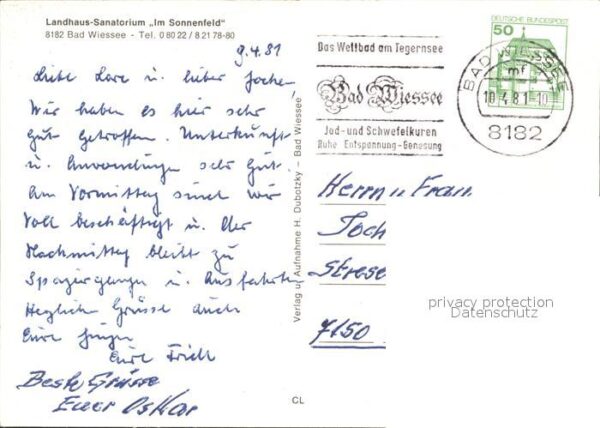 Landhaus-Sanatorium „Im Sonnenfeld"
8182 Bad Wiessee - Tel. 0 80 22 / 8 21 78-80
9.4.81
Liebe Lore u. lieber Jochen,
Wir haben es hier sehr
gut getroffen. Unterkunft
u. Anwendungen sehr gut.
Am Vormittag sind wir
voll beschäftigt u. der
Nachmittag bleibt zu
Spaziergänge u. Ausfahrten
Herzliche Grüsse auch
Eure
Eure
Beste Grüsse
Euer Oskar
Verlag u. Aufnahme H. Dubotzky - Bad Wiessee
CL
Das Weltbad am Tegernsee
Bad Wiessee
Jod- und Schwefelkuren
Ruhe Entspannung-Genesung
DEUTSCHE BUNDESPOST
50
BAD WIESSEE
mf
10.4.81-10
8182
Herrn u Frau
Joch
Strese
7150
privacy protection
Datenschutz